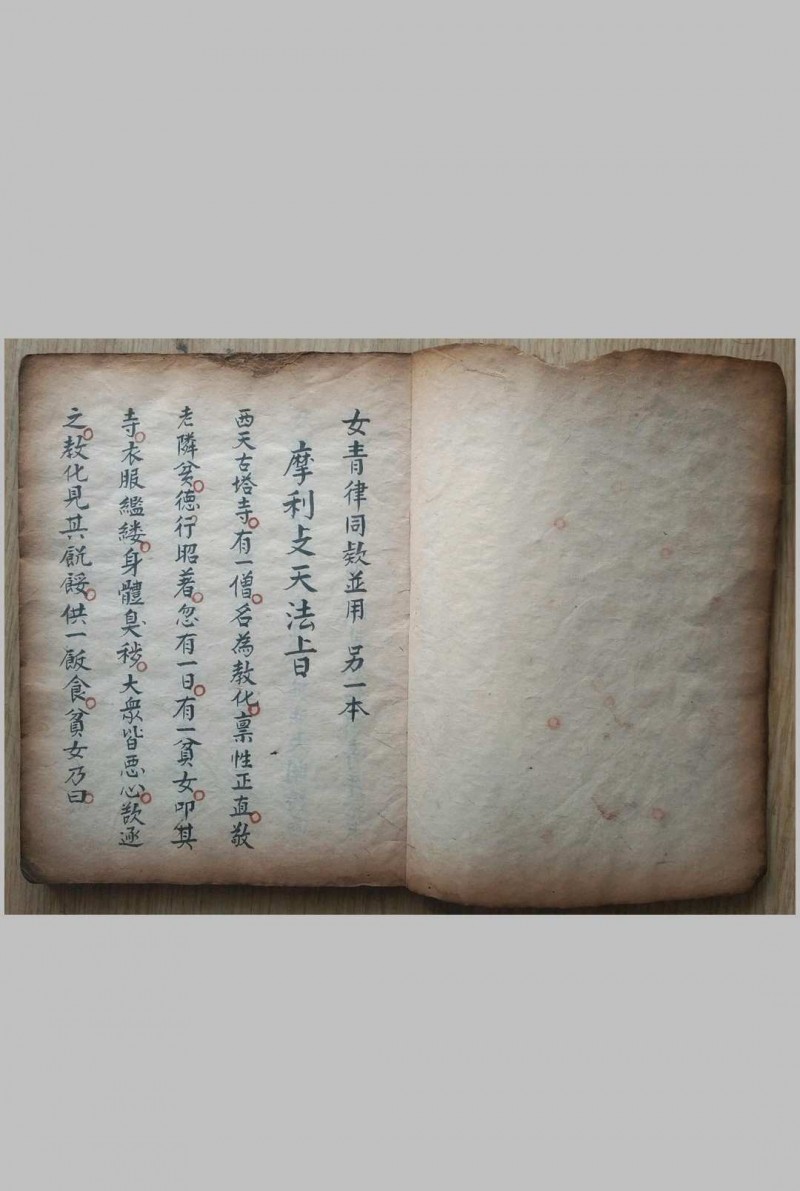 女青律同欵並用 另一本
摩利攴天法旨
西天古塔寺。有一僧。名為教化。禀性正直。敬
老隣贫。德行昭著。忽有一日。有一貧女。叩其
寺。衣服繿縷。身體臭秽。大衆皆惡心。欲逐
之。教化見其飢餒。供一飯食。貧女乃曰。